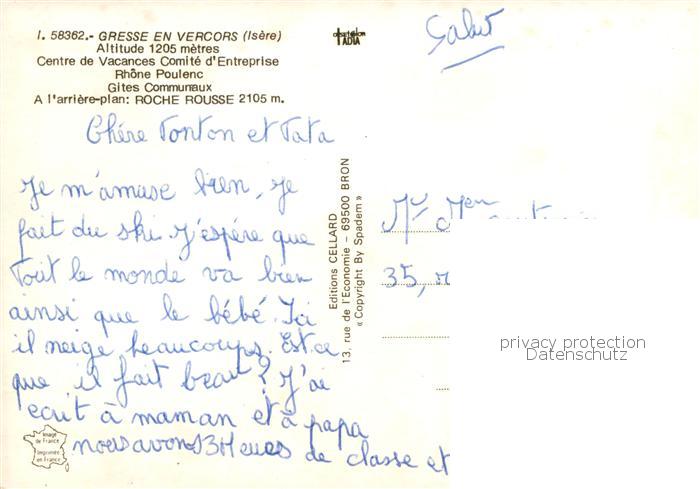 I. 58362.- GRESSE EN VERCORS (Isère)
Altitude 1205 mètres
Centre de Vacances Comité d'Entreprise
Rhône Poulenc
Gites Communaux
A l'arrière-plan: ROCHE ROUSSE 2105 m.
Salut
Chére Tonton et Tata
Je m'amuse bien, Je
fait du ski. J'espére que
Tout le monde va bien
ainsi que le bébé. Ici
il neige beaucoups. Est ce
que il fait beau? J'ai
ecrit à maman et à papa
nous avons 3 Heures de classe et
Editions CELLARD
13, rue de l'Economie - 69500 BRON
« Copyright By Spadem »
35,
privacy protection
Datenschutz
Image
de France
Imprimée
en France